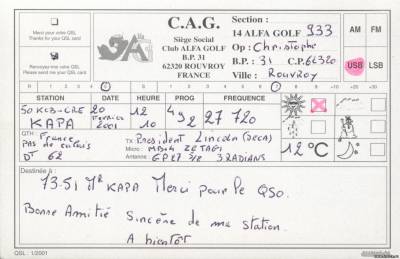 Merci pour votre QSL
Thanks for your QSL
Renvoyez-moi votre QSL
Please send me your QSL card
C.A.G.
Siège Social
Club ALFA GOLF
B.P. 31
62320 ROUVROY
FRANCE
Section :
14 ALFA GOLF 933
Op : Christophe
B.P. : 31 C.P. 62320
Ville : Rouvroy
AM FM
USB LSB
STATION DATE HEURE PROG FREQUENCE
50 KCB-CRE 20 12 4 9 2 27 720
KAPA Fevrier 10
2001
QTH France
PAS de calais
DT 62
TX President Lincoln
Micro : ZETAGI
Antenne : GP27 3 RADIANS
12 °C
Destinée à :
73.51 Mr KAPA Merci pour le QSO.
Bonne Amitié Sincère de ma station.
A bientôt
QSL : 1/2001